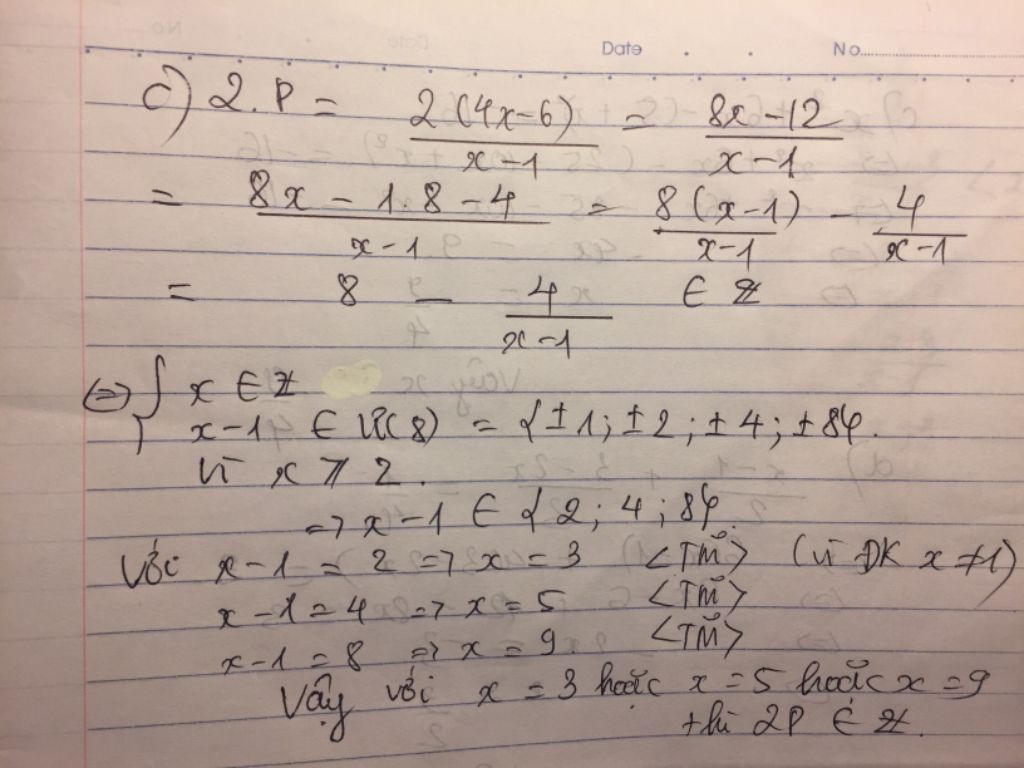 Date No.
c) 2.P = 2(4x-6)/x-1 = 8x-12/x-1
= 8x - 1.8 - 4/x-1 = 8(x-1)/x-1 - 4/x-1
= 8 - 4/x-1 ∈ Z
(=) { x ∈ Z
x-1 ∈ Ư(8) = {±1; ±2; ±4; ±8}.
Vì x ⩾ 2.
=> x-1 ∈ {2; 4; 8}.
Với x-1 = 2 => x = 3 <TM> (vì ĐK x ≠ 1)
x-1 = 4 => x = 5 <TM>
x-1 = 8 => x = 9 <TM>
Vậy với x = 3 hoặc x = 5 hoặc x = 9
thì 2P ∈ Z.